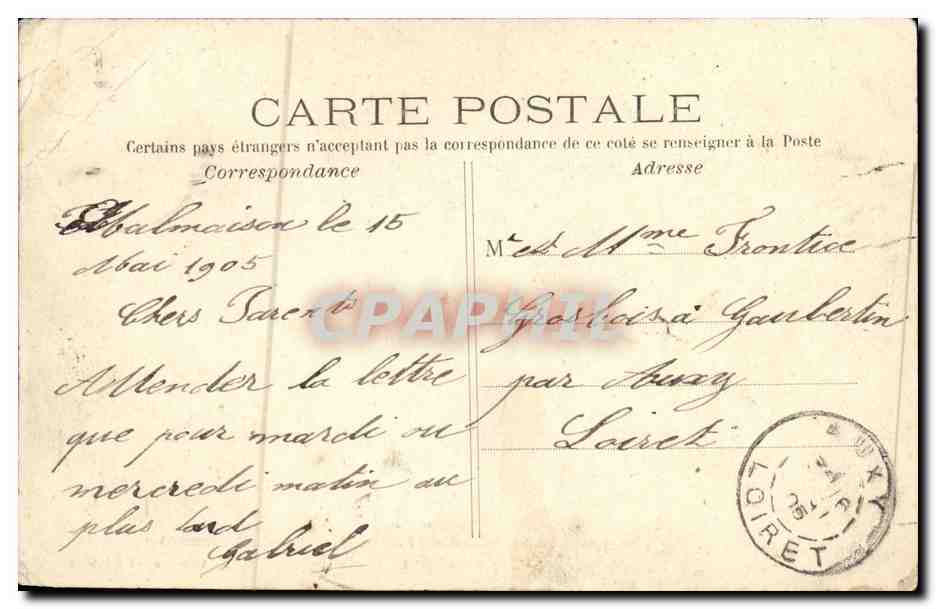 CARTE POSTALE
Certains pays étrangers n'acceptant pas la correspondance de ce coté se renseigner à la Poste
Correspondance
Malmaison le 15
Mai 1905
Chers Parents
Attender la lettre
que pour mardi ou
mercredi matin au
plus tard
Gabriel
Adresse
Mr et Mme Frontice
Grosbois à Gaubertin
par Auxy
Loiret
AUXY
LOIRET
05
CPAPHIL